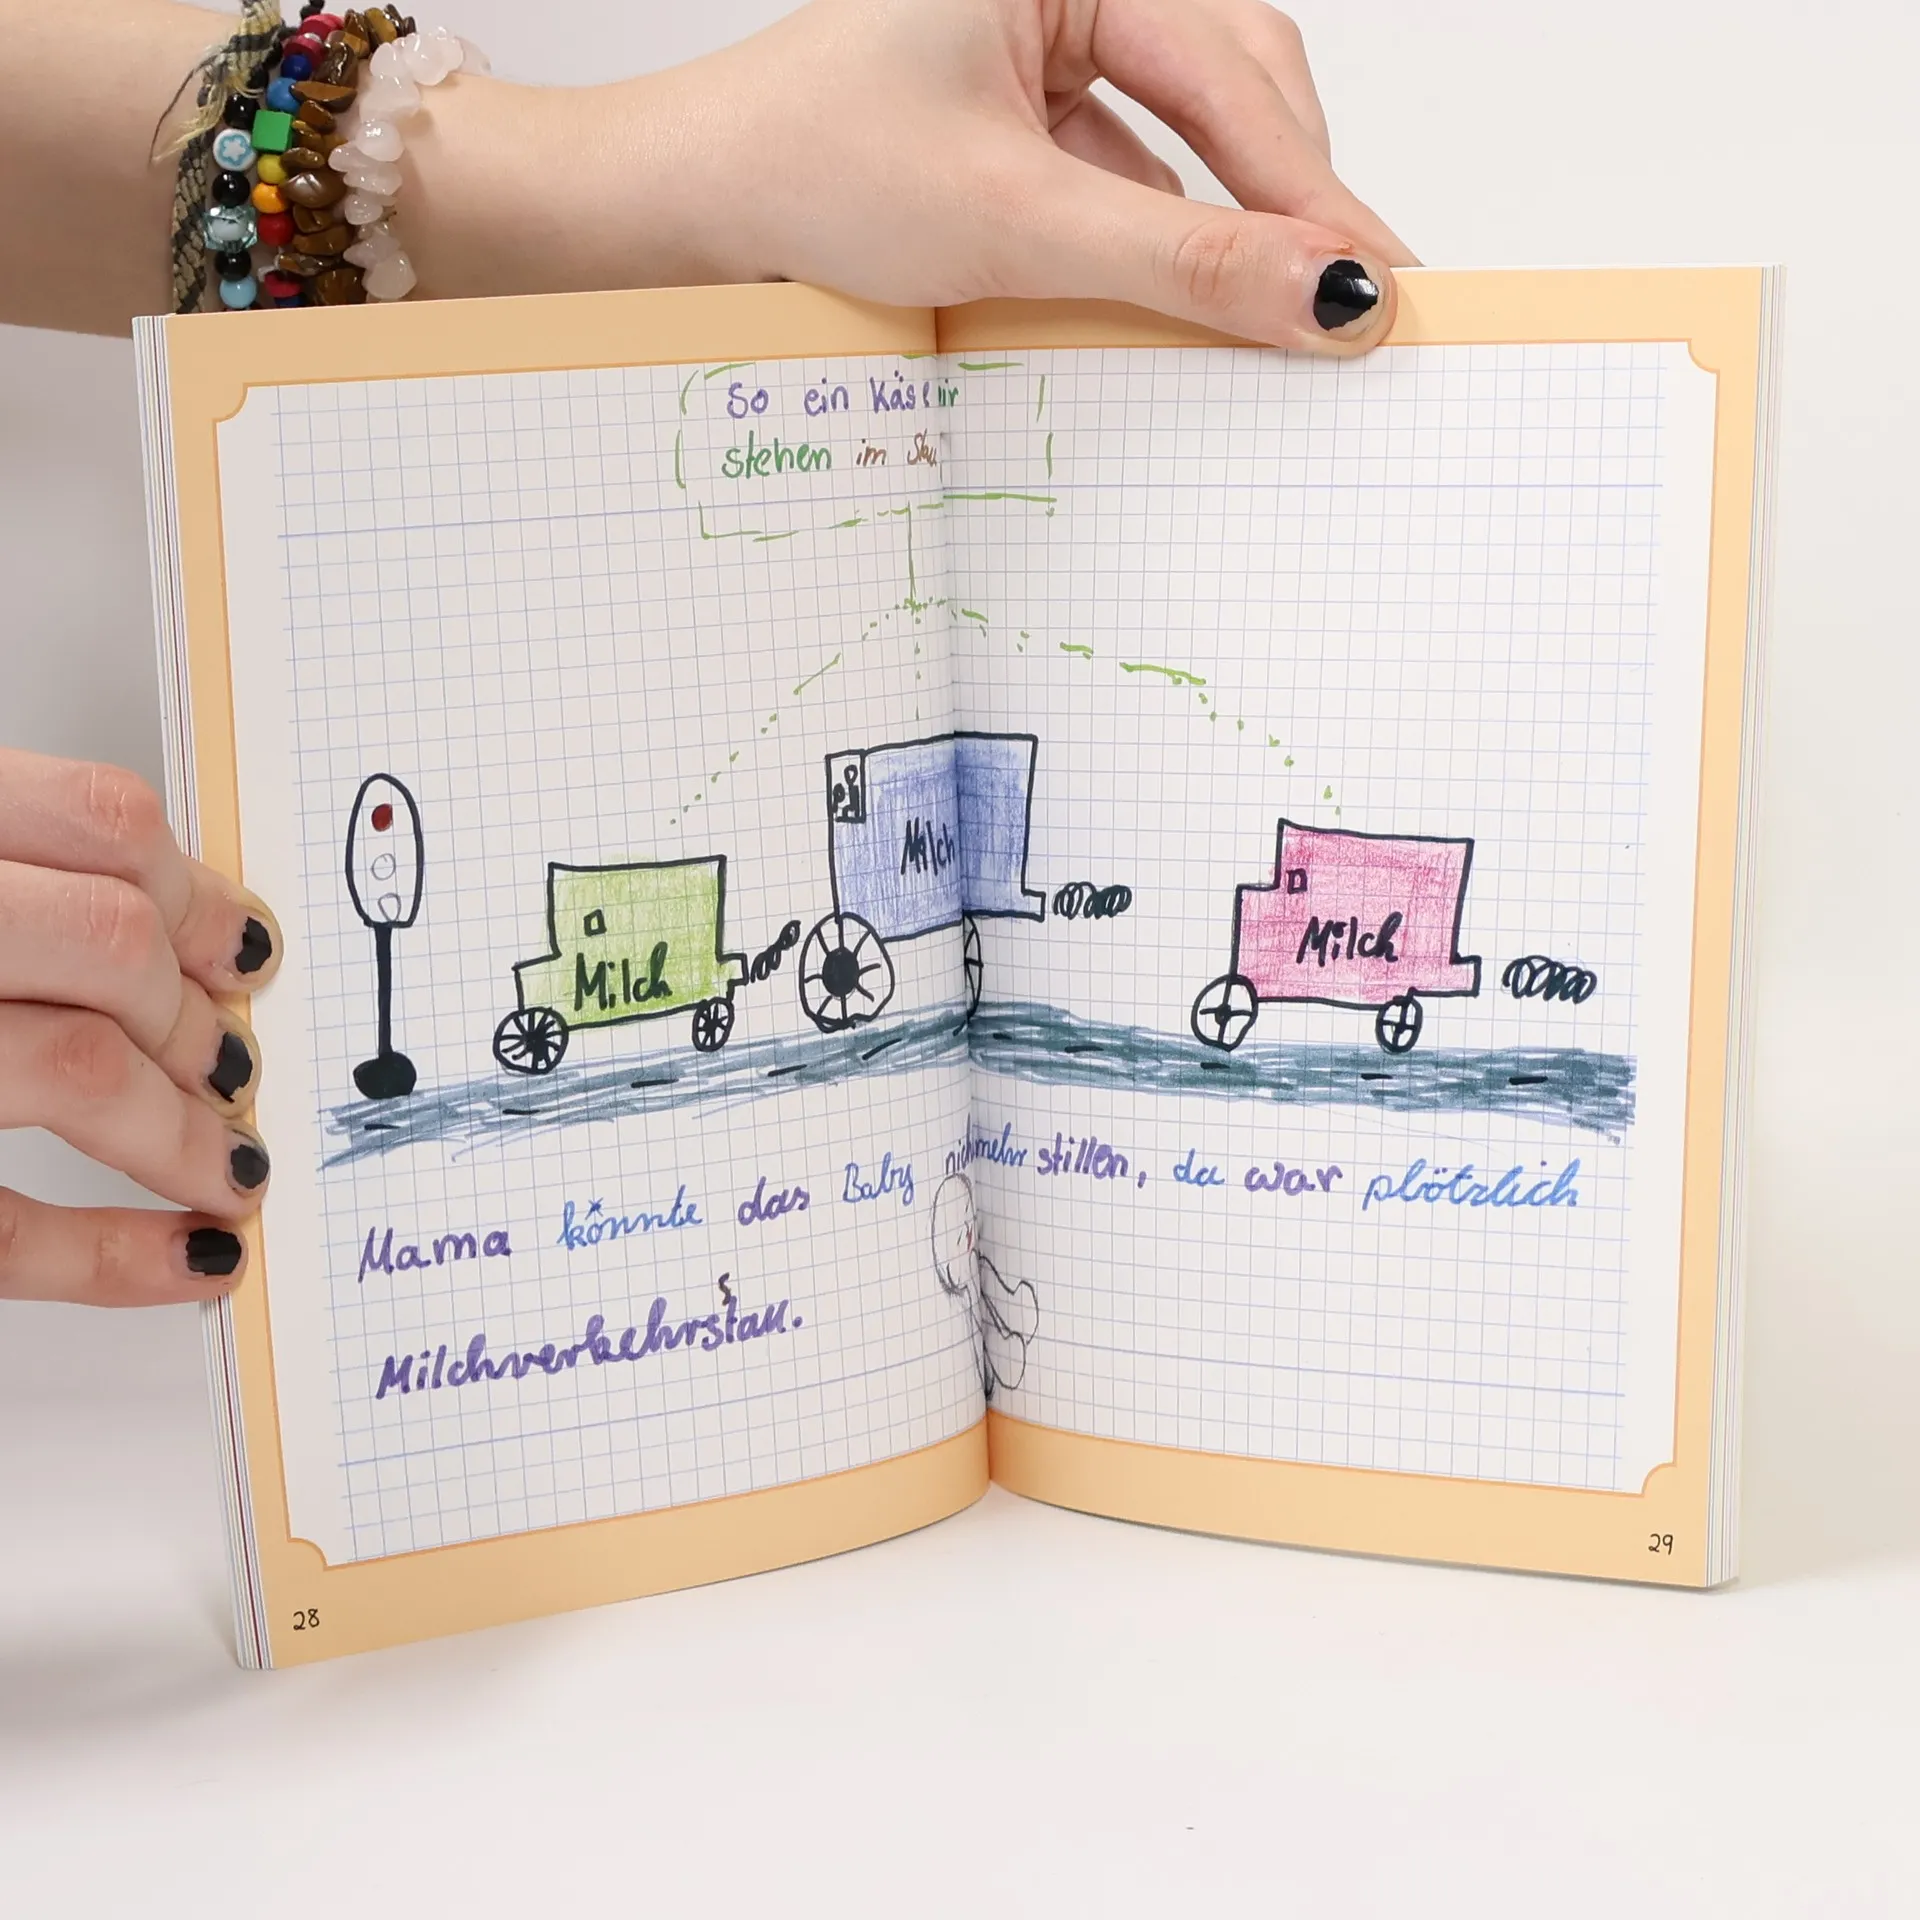 So ein Käse wir
stehen im Stau
Milch
Milch
Milch
Mama könnte das Baby nich mehr stillen, da war plötzlich
Milchverkehrsstau.
28
29